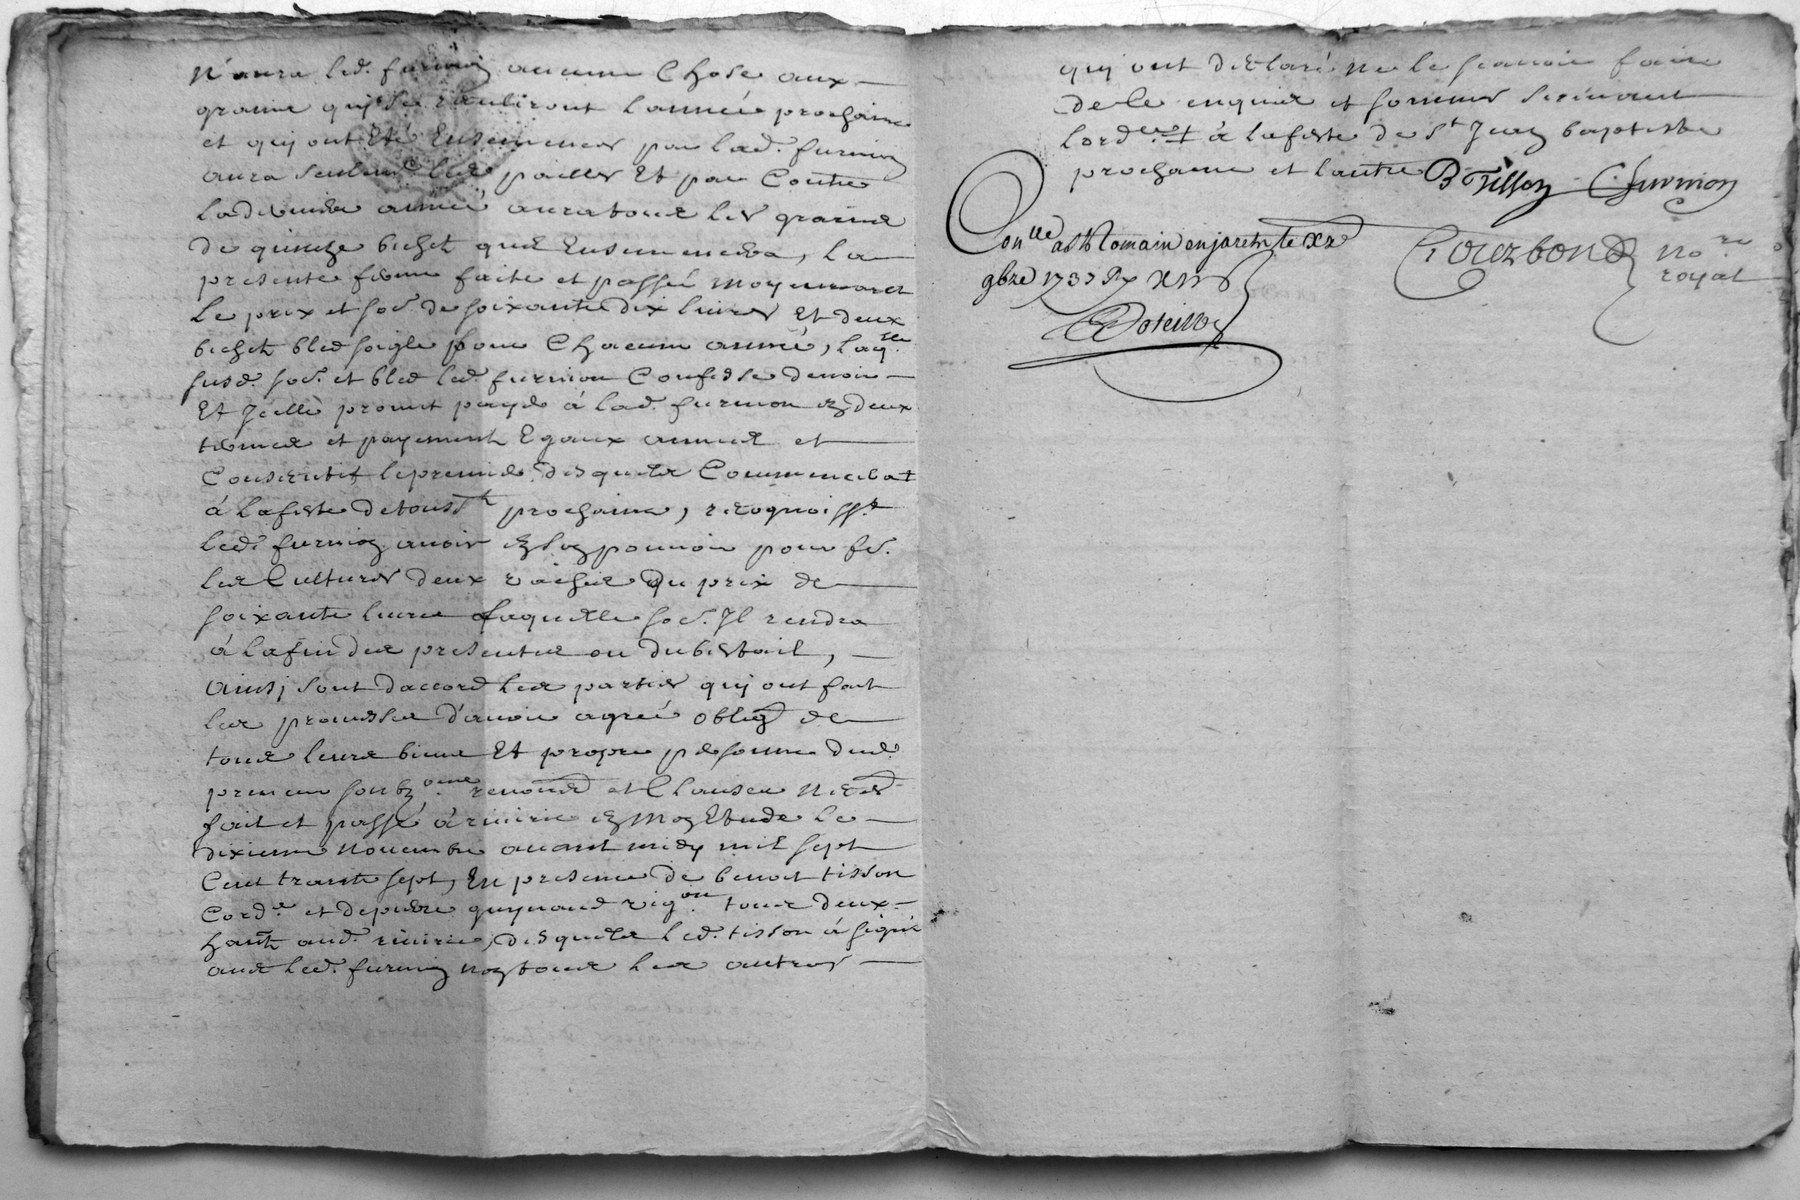 n'aura led. furnion aucune chose aux
grains quj se cueuliront l'année prochaine
et quj ont été ensemencés par lad. furnion
aura seulemt. les pailles et par contre
la derniere année aura tous les grains
de quinze bichet quil ensemencera, la
presente ferme faite et passée moyennant
le prix et so.e de soixante dix livres et deux
bichet bled soigle pour chacune année, laqlle.
susd. so.e et bled led. furnion confesse devoir
et jcelle promet payer à lad. furnion en deux
termes et payements egaux annuel et
consecutif le premier desquels commencerat
à la feste de touss.t prochaine, recognoiss.t
led. furnion avoir en son pouvoir pour f.e
les cultures deux vaches du prix de
soixante livres laquelle so.e jl rendra
à la fin des presentes ou du bestail,
ainsj sont d'accord les parties quj ont fait
les promesses d'avoir agréé oblig. de
tous leurs biens et propre personne dud.
preneur renond. et clauses neces.
fait et passé à riverie en mon etude le
dixieme novembre avant midy mil sept
cent trante sept, en presence de benoit tisson
cord.r et de pierre guynand vig.on tous deux
habt. aud. riverie, desquels led. tisson à signé
avec led. furnion non tous les autres
quj ont declaré ne le scavoir faire
de ce enquis et sommés suivant
l'ord.ce à la feste de St. Jean baptiste
prochaine et l'autre B Tisson furnion
Conlle a St Romain en jarest le
9bre 1737 Rx
Gourbond no.re
royal